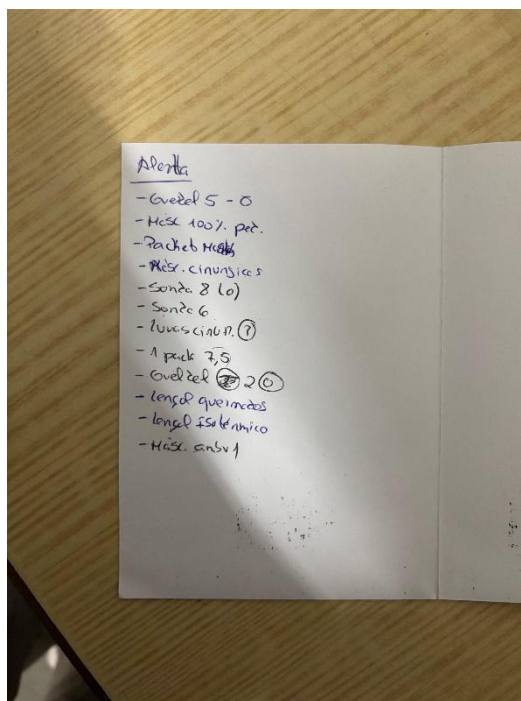 Alerta
- Guedel 5 - 0
- Másc 100% ped.
- Packeb
- Másc. cirurgicas
- Sonda 8 (0)
- Sonda 6
- luvas cirur. 7
- 1 pack 7,5
- Guedel 2 0
- lençol queimados
- lençol Isotérmico
- Másc. ambu 1